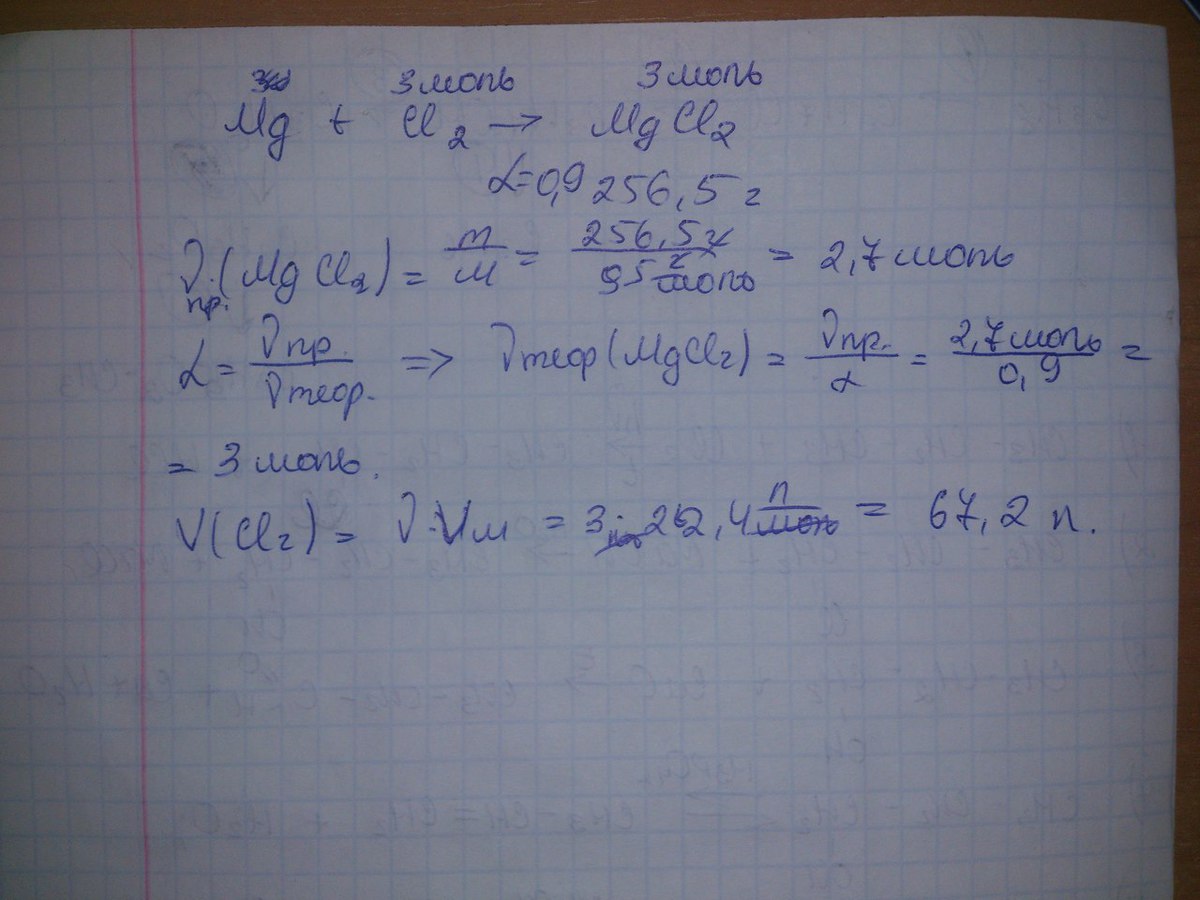 3 моль 3 моль
Mg + Cl2 → MgCl2
α=0,9 256,5 г
νпр.(MgCl2) = m/M = 256,5 г / 95 г/моль = 2,7 моль
α = νпр. / νтеор. => νтеор(MgCl2) = νпр. / α = 2,7 моль / 0,9 =
= 3 моль.
V(Cl2) = ν·Vм = 3 · 22,4 л/моль = 67,2 л.